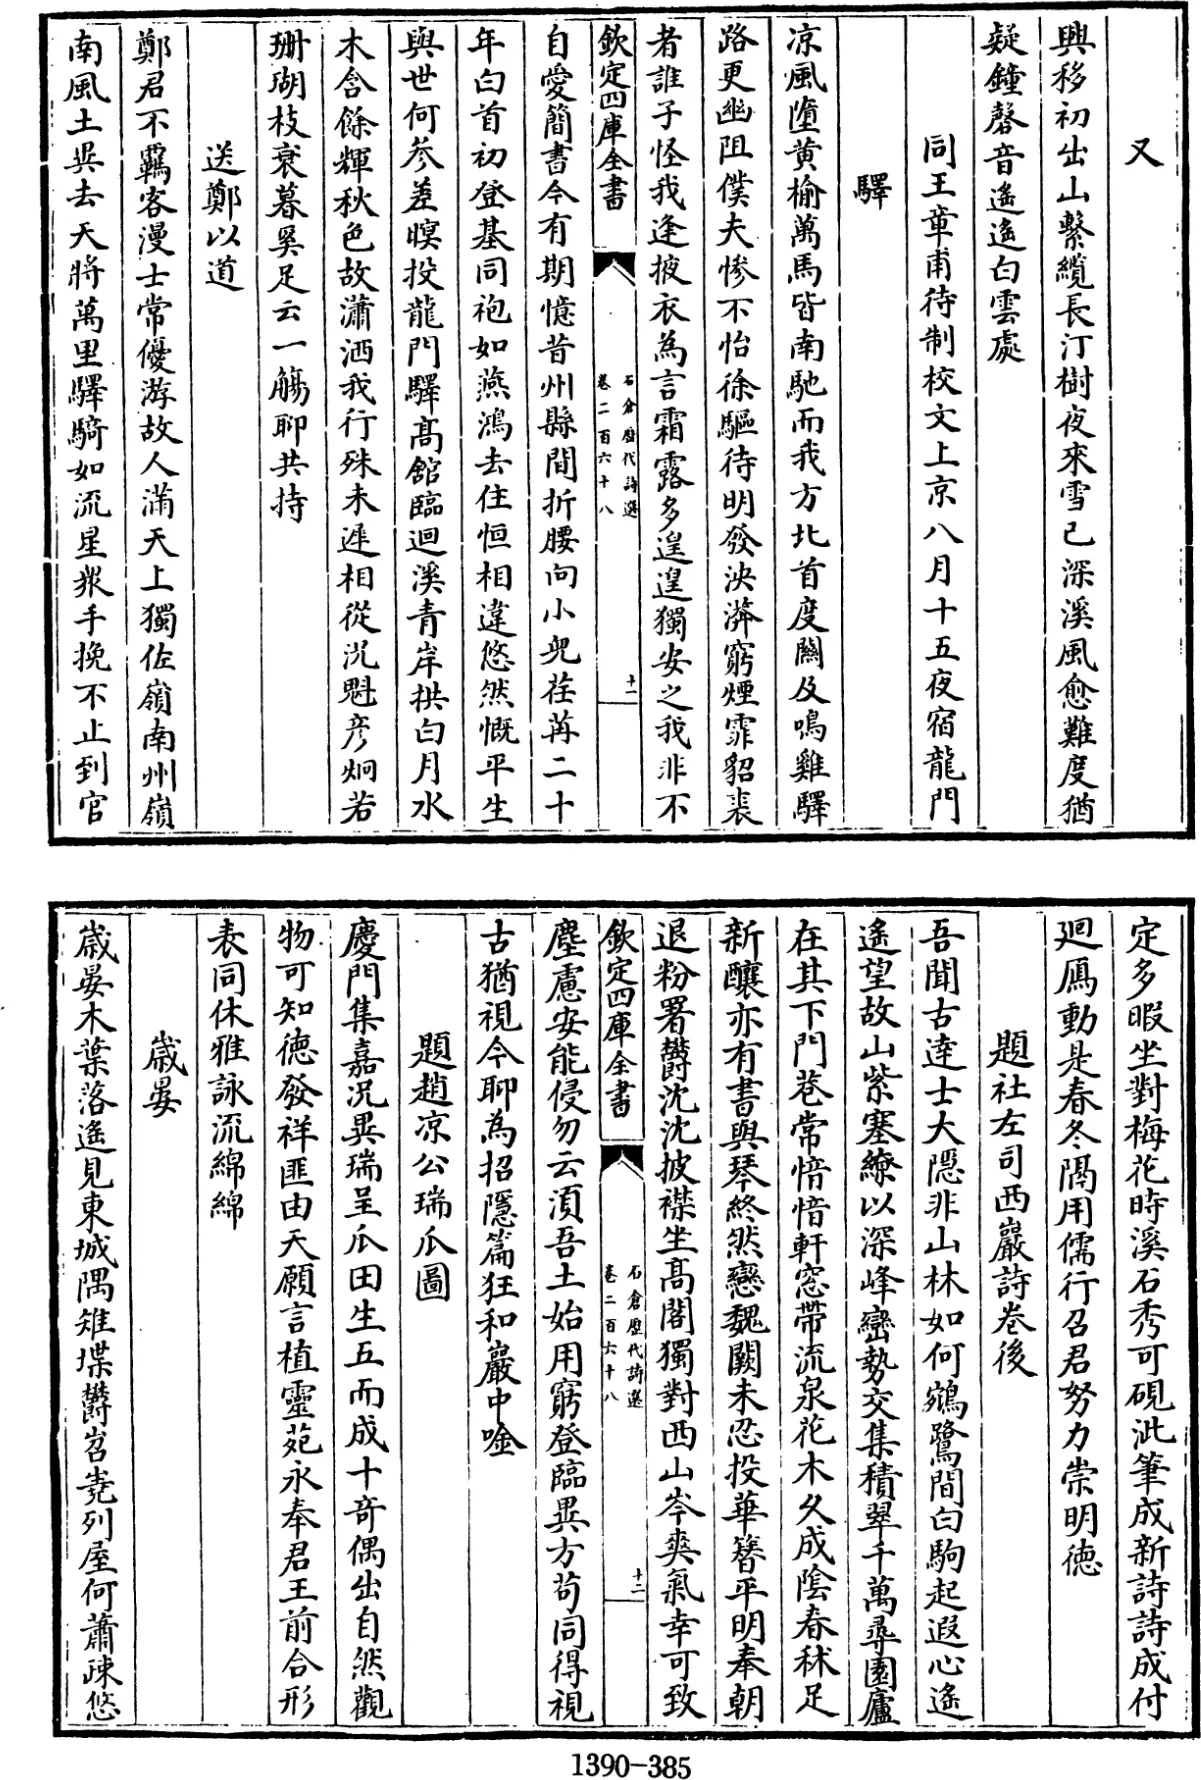 又
興移初出山繫纜長汀樹夜來雪已深溪風愈難度猶
疑鐘磬音遙遙白雲處
同王章甫待制校文上京八月十五夜宿龍門
驛
凉風墮黄榆萬馬皆南馳而我方北首度關及鳴雞驛
路更幽阻僕夫慘不怡徐驅待明發泱漭窮煙霏貂裘
者誰子怪我逢掖衣為言霜露多遑遑獨安之我非不
欽定四庫全書
石倉歷代詩選
卷二百六十八
十一
自愛簡書今有期憶昔州縣間折腰向小兒荏苒二十
年白首初登基同袍如燕鴻去住恒相違悠然慨平生
與世何參差暝投龍門驛高館臨迴溪青岸拱白月水
木含餘輝秋色故瀟洒我行殊未遲相從沉魁彦炯若
珊瑚枝衰暮奚足云一觴聊共持
送鄭以道
鄭君不羈客漫士常優游故人滿天上獨佐嶺南州嶺
南風土異去天將萬里驛騎如流星衆手挽不止到官
定多暇坐對梅花時溪石秀可硯泚筆成新詩詩成付
迴鴈動是春冬隔用儒行召君努力崇明德
題社左司西巖詩卷後
吾聞古達士大隱非山林如何鵷鷺間白駒起遐心遙
遙望故山紫塞繚以深峰巒勢交集積翠千萬尋園廬
在其下門巷常愔愔軒窓帶流泉花木久成陰春秫足
新釀亦有書與琴終然戀魏闕未忍投華簪平明奉朝
退粉署欝沈沈披襟坐高閣獨對西山岑爽氣幸可致
欽定四庫全書
石倉歷代詩選
卷二百六十八
十二
塵慮安能侵勿云湏吾土始用窮登臨異方苟同得視
古猶視今聊為招隱篇狂和巖中唫
題趙凉公瑞瓜圖
慶門集嘉況異瑞呈瓜田生五而成十奇偶出自然觀
物可知德發祥匪由天願言植靈苑永奉君王前合形
表同休雅詠流綿綿
歲晏
歲晏木葉落遙見東城隅雉堞欝岧嶤列屋何蕭疎悠
1390-385